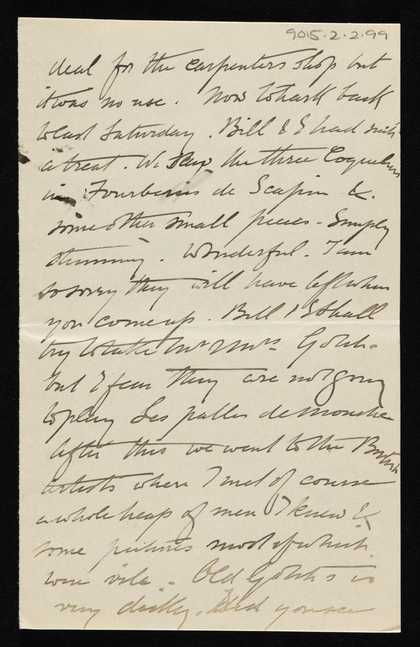 9015.2.2.99
deal for the carpenters shop but
it was no use. Now to hark back
to last Saturday. Bill & I had such
a treat. We saw the three Coquelins
in Fourberies de Scapin &.
some other small pieces - Simply
stunning. Wonderful. I am
so sorry they will have left when
you come up. Bill & I shall
try to take Mr & Mrs Gotch -
but I fear they are not going
to play Les pattes de mouche
After this we went to the British
artists where I met of course
a whole heap of men I knew &
some pictures most of which
were vile - Old Gotch's is
very dickey. Did you see